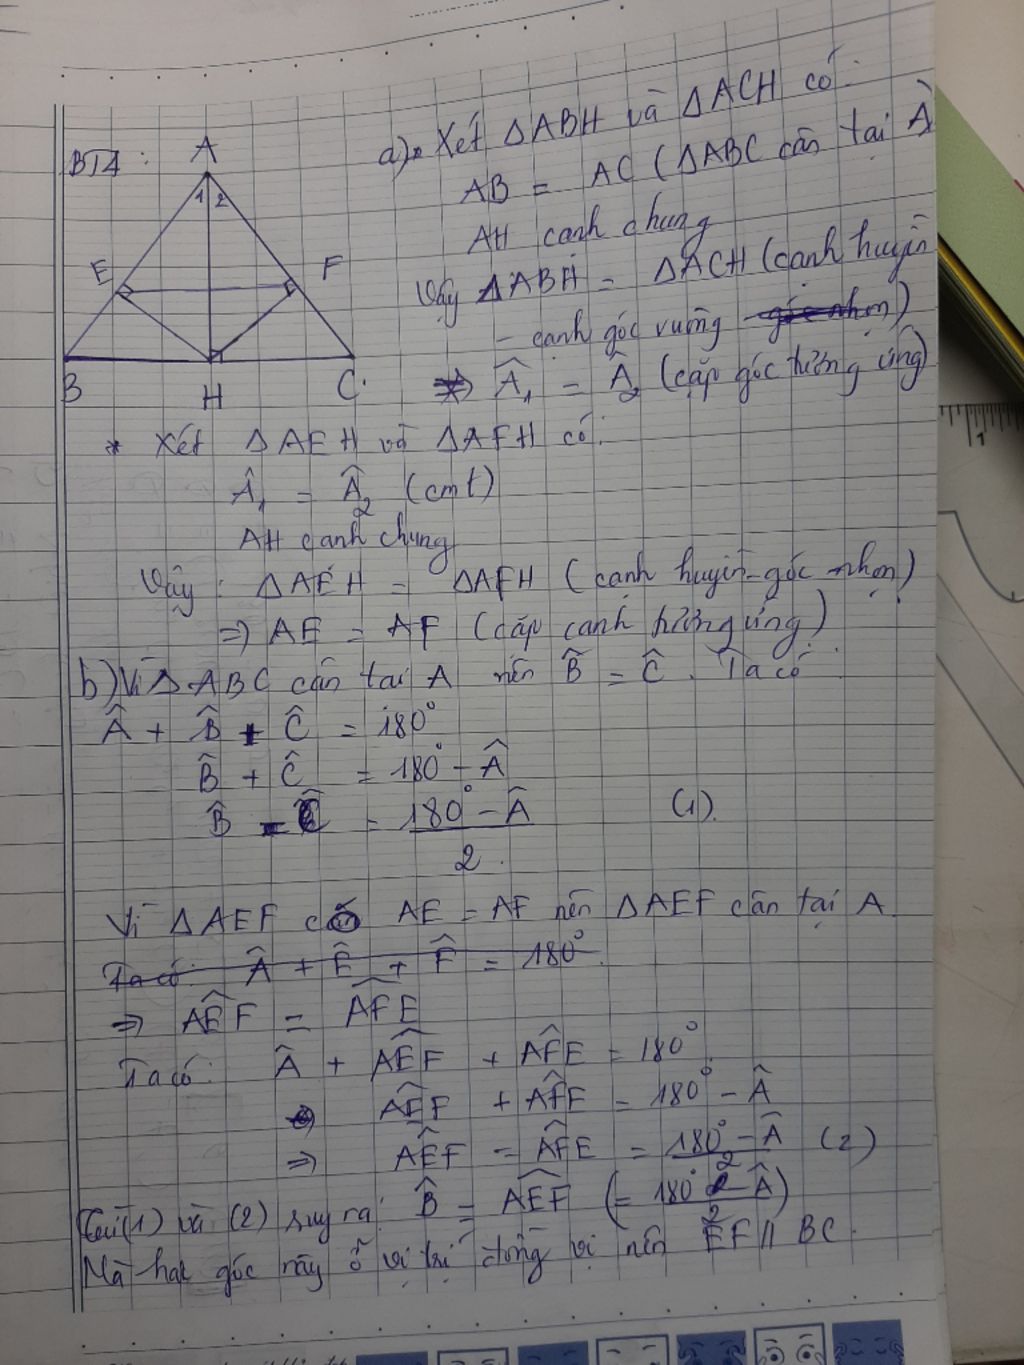 BT4:
A
1 2
E
F
B
H
C
a) • Xét ΔABH và ΔACH có:
AB = AC (ΔABC cân tại A
AH cạnh chung
Vậy ΔABH = ΔACH (cạnh huyền
- cạnh góc vuông góc nhọn)
⇒ Â₁ = Â₂ (cặp góc tương ứng)
* Xét ΔAEH và ΔAFH có:
Â₁ = Â₂ (cmt)
AH cạnh chung
Vậy: ΔAEH = ΔAFH (cạnh huyền-góc nhọn)
⇒ AE = AF (cặp cạnh tương ứng)
b) Vì ΔABC cân tại A nên B̂ = Ĉ. Ta có
Â + B̂ + Ĉ = 180°
B̂ + Ĉ = 180° - Â
B̂ = Ĉ = (180° - Â)/2 (1).
Vì ΔAEF có AE = AF nên ΔAEF cân tại A
Ta có: Â + Ê + F̂ = 180°.
⇒ AÊF = AF̂E
Ta có: Â + AÊF + AF̂E = 180°.
AÊF + AF̂E = 180° - Â
⇒ AÊF = AF̂E = (180° - Â)/2 (2)
Từ (1) và (2) suy ra: B̂ = AÊF (= (180° - Â)/2)
Mà hai góc này ở vị trí đồng vị nên EF // BC.
1